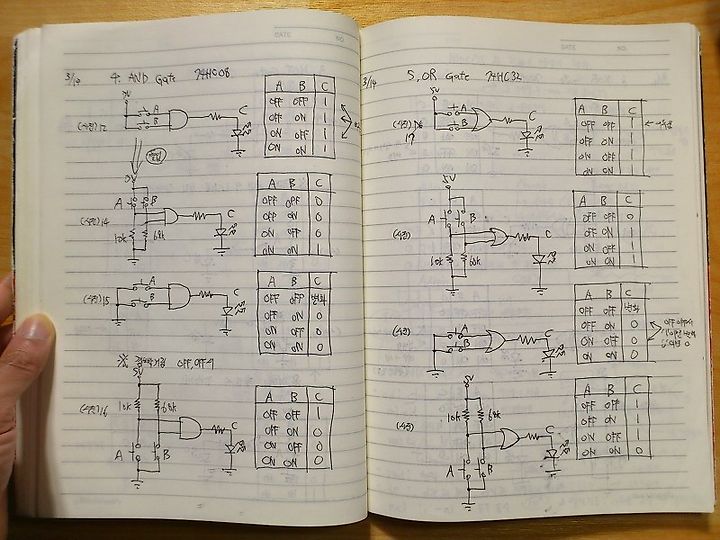 3/10 4. AND Gate 74HC08
A B C
OFF OFF 1
OFF ON 1
ON OFF 1
ON ON 1
5V
A
B
C
(사진)12
5V
A B
C
(사진)14
10k 68k
A B C
OFF OFF 0
OFF ON 0
ON OFF 0
ON ON 1
A
B
C
(사진)15
A B C
OFF OFF 변화
OFF ON 0
ON OFF 0
ON ON 0
OFF, OFF시
5V
(사진)16
10k 68k
C
A B
A B C
OFF OFF 1
OFF ON 0
ON OFF 0
ON ON 0
3/14 5. OR Gate 74HC32
5V
A
B
C
17
A B C
OFF OFF 1
OFF ON 1
ON OFF 1
ON ON 1
5V
A B
C
(사진)
10k 68k
A B C
OFF OFF 0
OFF ON 1
ON OFF 1
ON ON 1
(사진)
A
B
C
A B C
OFF OFF 변화
OFF ON 0
ON OFF 0
ON ON 0
5V
(사진)
10k 68k
C
A B
A B C
OFF OFF 1
OFF ON 1
ON OFF 1
ON ON 0